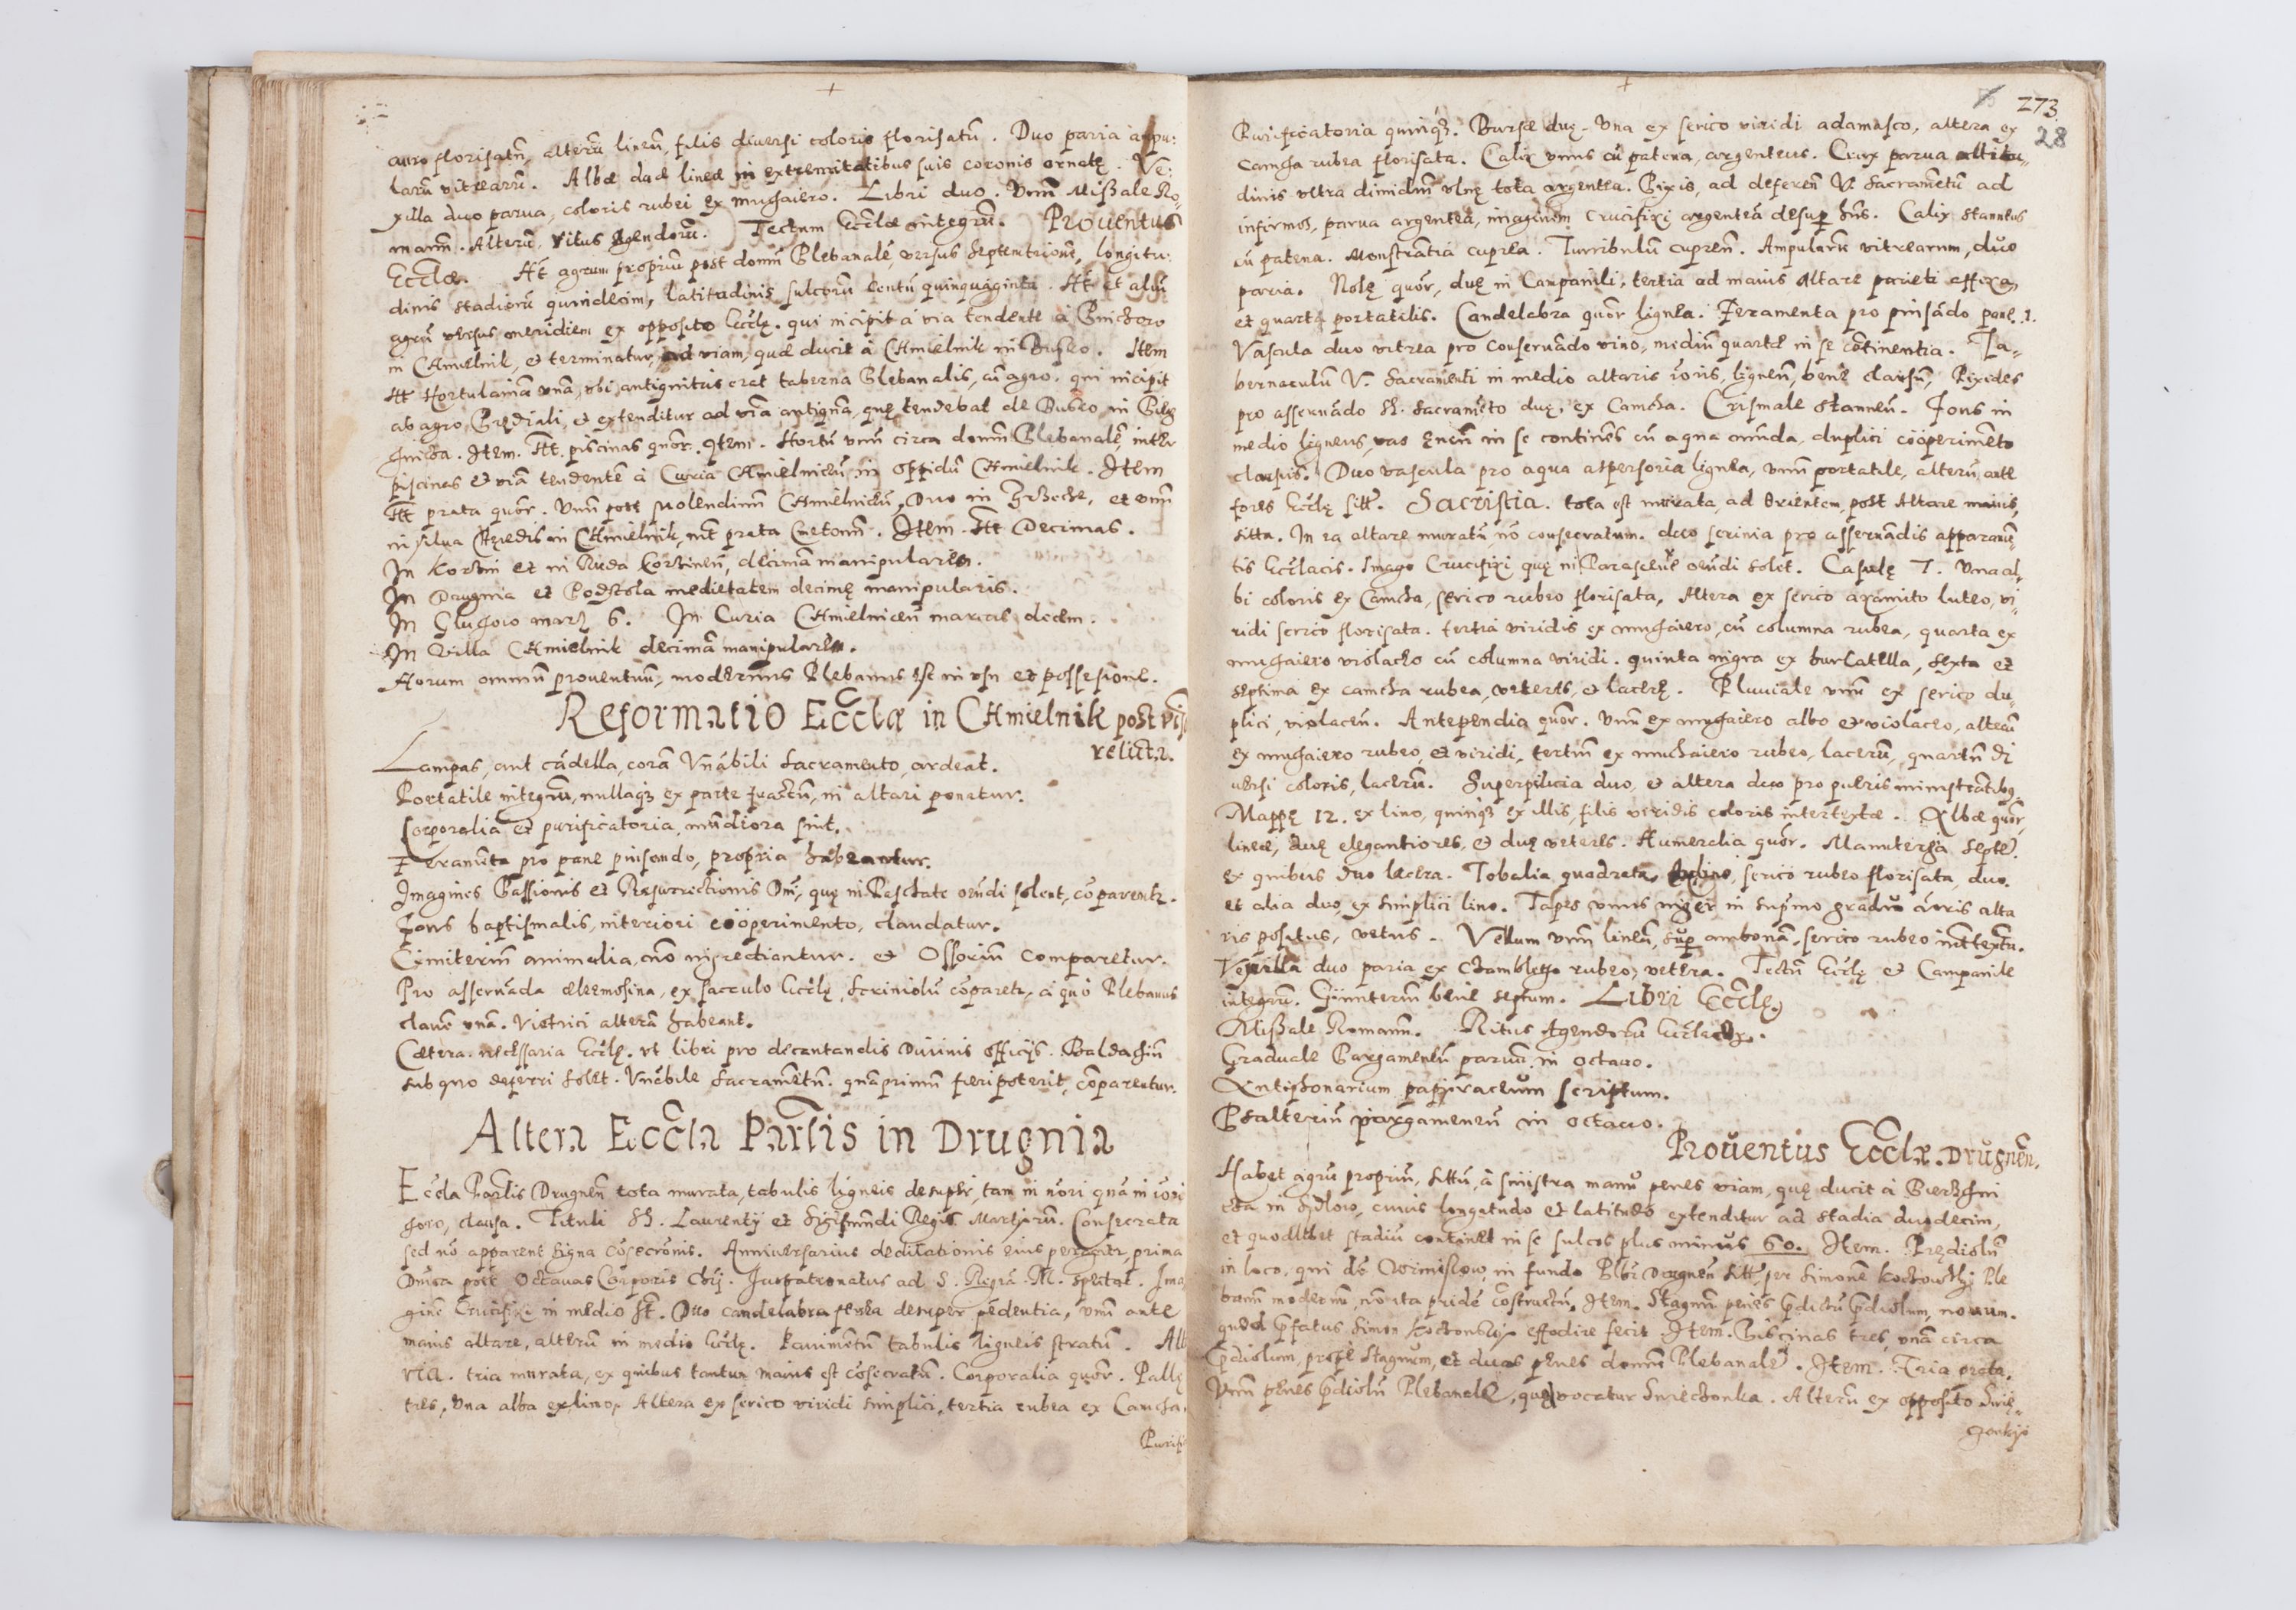 auro florisatũ, alterũ lineũ, filis diuersi coloris florisatũ. Duo paria ampu:
larũ vitrearũ. Albæ duæ lineæ in extremitatibus suis coronis ornatę. Ve:
xilla duo parua, coloris rubei ex muchaiero. Libri duo. Vnũ Missale Ro-
manũ. Alterũ, ritus Agendorũ. Tectum Eccłæ integrũ. Prouentus
Eccłæ. Ht́ agrum propriũ post domũ Plebanalẽ, versus septentrionẽ, longitu:
dinis stadiorũ quindecim, latitudinis sulcorũ centũ quinquaginta. Ht́ et aliũ
agrũ versus meridiem ex opposito Eccłę. qui incipit á via tendente á Pinczow
in Chmielnik, et terminatur, ad viam, quæ ducit á Chmielnik in Busko. Item
Ht́ Hortulaniã vnã, vbi antiquitus erat taberna Plebanalis, cũ agro. qui incipit
ab agro Prędiali, et extenditur ad viã antiquã, quę tendebat de Busko in Pierz
chnicza. Item. Ht́. piscinas quór. Item. Hortũ vnũ circa domũ Plebanalẽ inter
piscinas et viã tendentẽ á Curia Chmielniceń in oppidũ Chmielnik. Item
Ht́ prata quór. Vnũ post molendinũ Chmielniceń, Duo in Grzecke, et vnũ
in silua Hęredis in Chmielnik, int́ prata Cmetonũ. Item. Ht́ Decimas.
In Kotlin et in Ruda kotlineń, decimã manipularem.
In Drugnia et Podstola medietatem decimę manipularis.
In Gluchow març 6. In Curia Chmielniceń marcas decem.
In Villa Chmielnik decimã manipularem.
Horum omniũ prouentuũ, modernus Plebanus est in vsu et possesione.
Reformatio Eccłæ in Chmielnik post vis
relicta.
Lampas, aut cãdella, corã Vnãbili Sacramento, ardeat.
Portatile integrũ, nullaq́ ex parte fractũ, in altari ponatur.
Corporalia et purificatoria, mũdiora sint.
Feramẽta pro pane pinsendo, propria habeantur.
Imagines Passionis et Resurrectionis Dńi, quę in Paschate ońdi solent, cõparentr.
Fons baptismalis, interiori coöperimento, claudatur.
Cimiteriũ animalia, nõ ingrediantur. et Ossoriũ comparetur.
Pro asseruãda eleemosina, ex sacculo Eccłę, scriniolũ cõparetr, á quo Plebanus
clauẽ vnã. Vietrici alterã habeant.
Cætera necessaria Eccłę. vt libri pro decantandis Diuinis officijs. Baldachiũ
sub quo deferri solet. Vnãbile Sacramẽtũ. quãprimũ fieri poterit, cõparentur.
Altera Eccła Parłis in Drugnia
Eccła Parłis Drugneń tota murata, tabulis ligneis desuper, tam in ńori quã in
choro, clausa. Tituli SS. Laurentij et Sigismũdi Regis Martyrũ. Consecrata
sed nõ apparent signa cõsecrõnis. Anniuersarius dedicationis eius peragitr, prima
Dńica post Octauas Corporis Chri. Juspatronatus ad S. Regiã. M. spectat. Ima
ginẽ Crucifixi in medio ht́. Duo candelabra ferrea desuper pẽdentia, vnũ ante
maius altare, alterũ in medio Eccłę. Pauimẽtũ tabulis ligneis stratũ. Alt
ria. tria murata, ex quibus tantum maius est cõsecratũ. Corporalia quór. Pallę
tres, vna alba ex lino, Altera ex serico viridi simplici, tertia rubea ex Camcha.
Purifi
273
28
Purificatoria quinq́. Bursæ duę. Vna ex serico viridi adamasco, altera ex
Camcha rubea florisata. Calix vnus cũ patena, argenteus. Crux parua altitu-
dinis vltra dimidiũ vlnę tota argentea. Pixis, ad deferen V. Sacramẽtũ ad
infirmos, parua argentea, imaginem Crucifixi argenteã desup hńs. Calix stanneus
cũ patena. Monstrantia cuprea. Turribulũ cupreũ. Ampularũ vitrearum, duo
paria. Nolę quór, duę in Campanili, tertia ad maius Altare parieti affixa,
et quarta portatilis. Candelabra quór lignea. Feramenta pro pinsãdo pane. 1.
Vascula duo vitrea pro conseruãdo vino, mediũ quartæ in se continentia. Ta-
bernaculũ V. Sacramenti in medio altaris ioris, ligneũ, bene clausũ, Pixides
pro asseruãdo SS. Sacramẽto duę, ex Camcha. Crismale stanneũ. Fons in
medio ligneus, vas ęneũ in se continẽs cũ aqua mũda, duplici coöperimẽto
clausus. Duo vascula pro aqua aspersoria lignea, vnũ portatile, alterũ ante
fores Eccłę sitt. Sacristia. tota est murata, ad Orientem, post Altare maius,
sitta. In ea altare muratũ, nõ consecratum. duo scrinia pro asseruãdis apparamẽ-
tis Eccłacis. Imago Crucifixi quę in Parasceue ońdi solet. Casulę 7. Vna al-
bi coloris ex Camcha, serico rubeo florisata, Altera ex serico axamito luteo, vi-
ridi serico florisata. tertia viridis ex muchaiero, cũ columna rubea, quarta ex
muchaiero violaceo cũ columna viridi. quinta nigra ex burcatella, sexta et
septima ex camcha rubea, veteres, et lacerę. Pluuiale vnũ ex serico du-
plici, violaceũ. Antependia quór. Vnũ ex muchaiero albo et violaceo, alterũ
ex muchaiero rubeo, et viridi, tertiũ ex muchaiero rubeo, lacerũ, quartũ di
uersi coloris, lacerũ. Superpilicia duo, et altera duo pro pueris ministrãtibq.
Mappę 12. ex lino, quinq́ ex illis, filis viridis coloris intertextæ. Albæ quór,
lineæ, duę elegantiores, et duę veteres. Humeralia quór. Manutergia septẽ.
ex quibus duo lacera. Tobalia quadrata, serico rubeo florisata, duo.
et alia duo, ex simplici lino. Tapes vnus niger in supmo gradu áoris alta
ris positus, vetus. Vellum vnũ lineũ, sup ambonã, serico rubeo intertextũ.
Vexilla duo paria ex Chambletto rubeo, vetera. Tectũ Eccłę et Campanile
integrũ. Cimiteriũ bene septum. Libri Eccłę.
Missale Romanũ. Ritus Agendorũ Eccłacoꝝ.
Graduale Pargameneũ paruũ, in octauo.
Antiphonarium papyraceum scriptum.
Psalteriũ pargameneũ in octauo.
Prouentus Eccłæ. Drugneń.
Habet agrũ propriũ, sittũ, á sinistra manu penes viam, quę ducit á Pierzchni
cza in Szydlow, cuius longitudo et latitudo extenditur ad stadia duodecim,
et quodlibet stadiũ continet in se sulcos plus minus 60. Item. Prędiolũ
in loco, qui dr Ormislow, in fundo Plebi Drugneń sitt, per Simonẽ Kochowski Ple
banũ modernũ, nõ ita pridẽ cõstructũ. Item. Stagnũ penes p̃dictũ p̃diolum, nouum.
quod p̃fatus Simon Kochowsky effodire fecit. Item. Piscinas tres, vnã circa
p̃diolum, prope stagnum, et duas penes domũ Plebanalẽ. Item. Tria prata.
Vnũ penes p̃diolũ Plebanale, quod vocatur Swiechonka. Alterũ ex opposito Swie-
chonky